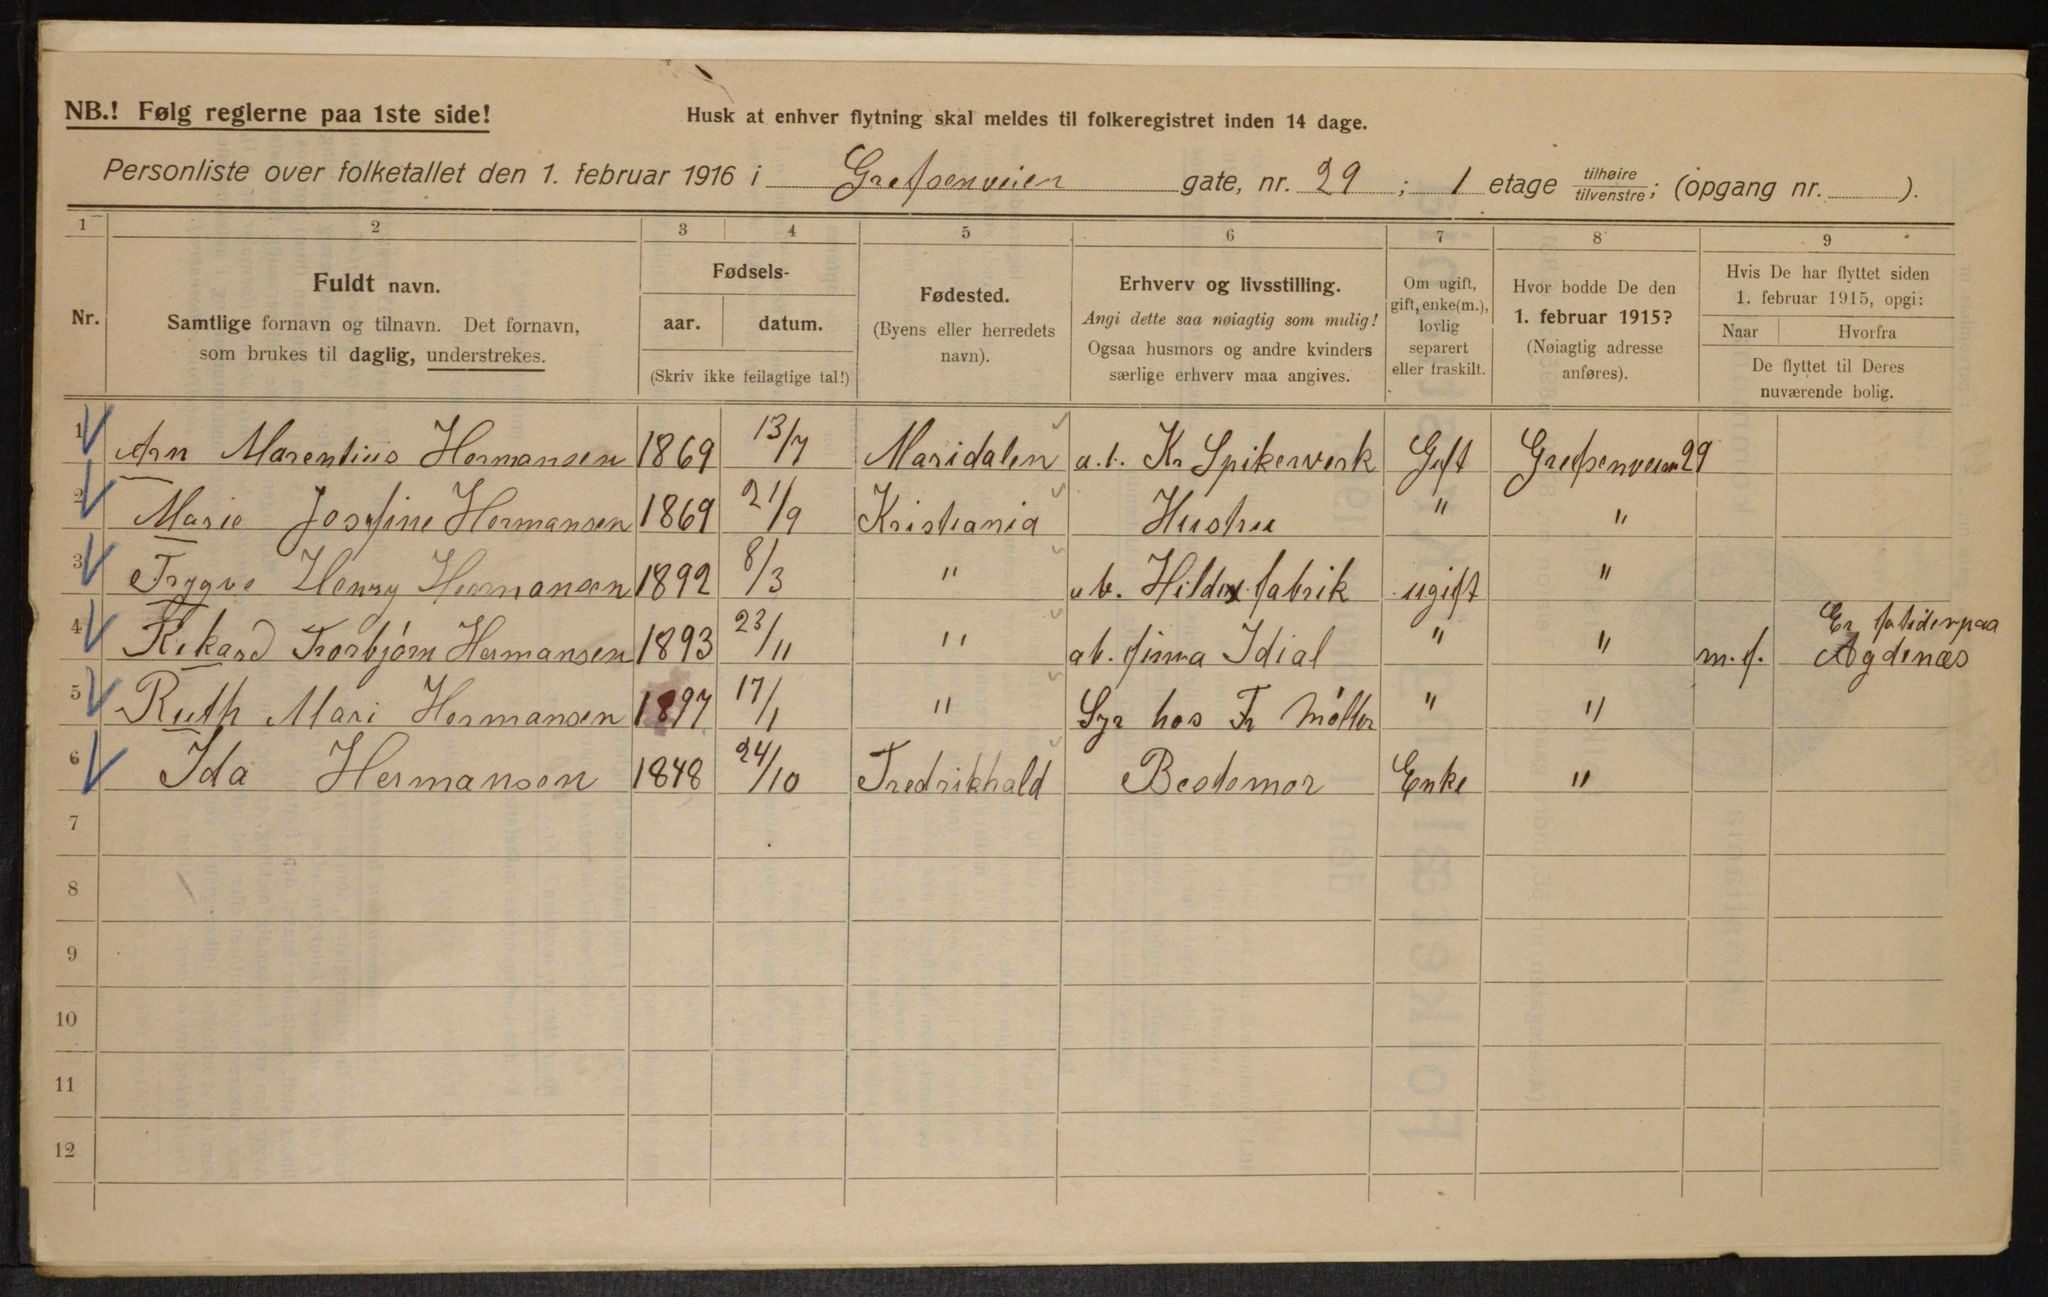 NB.! Følg reglerne paa 1ste side!
Husk at enhver flytning skal meldes til folkeregistret inden 14 dage.
Personliste over folketallet den 1. februar 1916 i Grefsenveien gate, nr. 29 ; 1 etage tilhøire/tilvenstre; (opgang nr. ).
1 2 3 4 5 6 7 8 9
Nr.
Fuldt navn.
Samtlige fornavn og tilnavn. Det fornavn,
som brukes til daglig, understrekes.
Fødsels-
aar. datum.
(Skriv ikke feilagtige tal!)
Fødested.
(Byens eller herredets
navn).
Erhverv og livsstilling.
Angi dette saa nøiagtig som mulig!
Ogsaa husmors og andre kvinders
særlige erhverv maa angives.
Om ugift,
gift, enke(m.),
lovlig
separert
eller fraskilt.
Hvor bodde De den
1. februar 1915?
(Nøiagtig adresse
anføres).
Hvis De har flyttet siden
1. februar 1915, opgi:
Naar Hvorfra
De flyttet til Deres
nuværende bolig.
1 Arn Marentius Hermansen 1869 13/7 Maridalen a.b. Kr Spikerverk Gift Grefsenveien 29
2 Marie Josefine Hermansen 1869 21/9 Kristiania Hustru " "
3 Trygve Henry Hermansen 1892 8/3 " ab. Hildes fabrik ugift "
4 Rikard Thorbjørn Hermansen 1893 23/11 " ab. firma Idial " " m.f. Er for tiden paa
Agdenæs
5 Ruth Mari Hermansen 1897 17/1 " Syr hos Fr Møller " "
6 Ida Hermansen 1848 24/10 Fredrikhald Bestemor Enke "
7
8
9
10
11
12